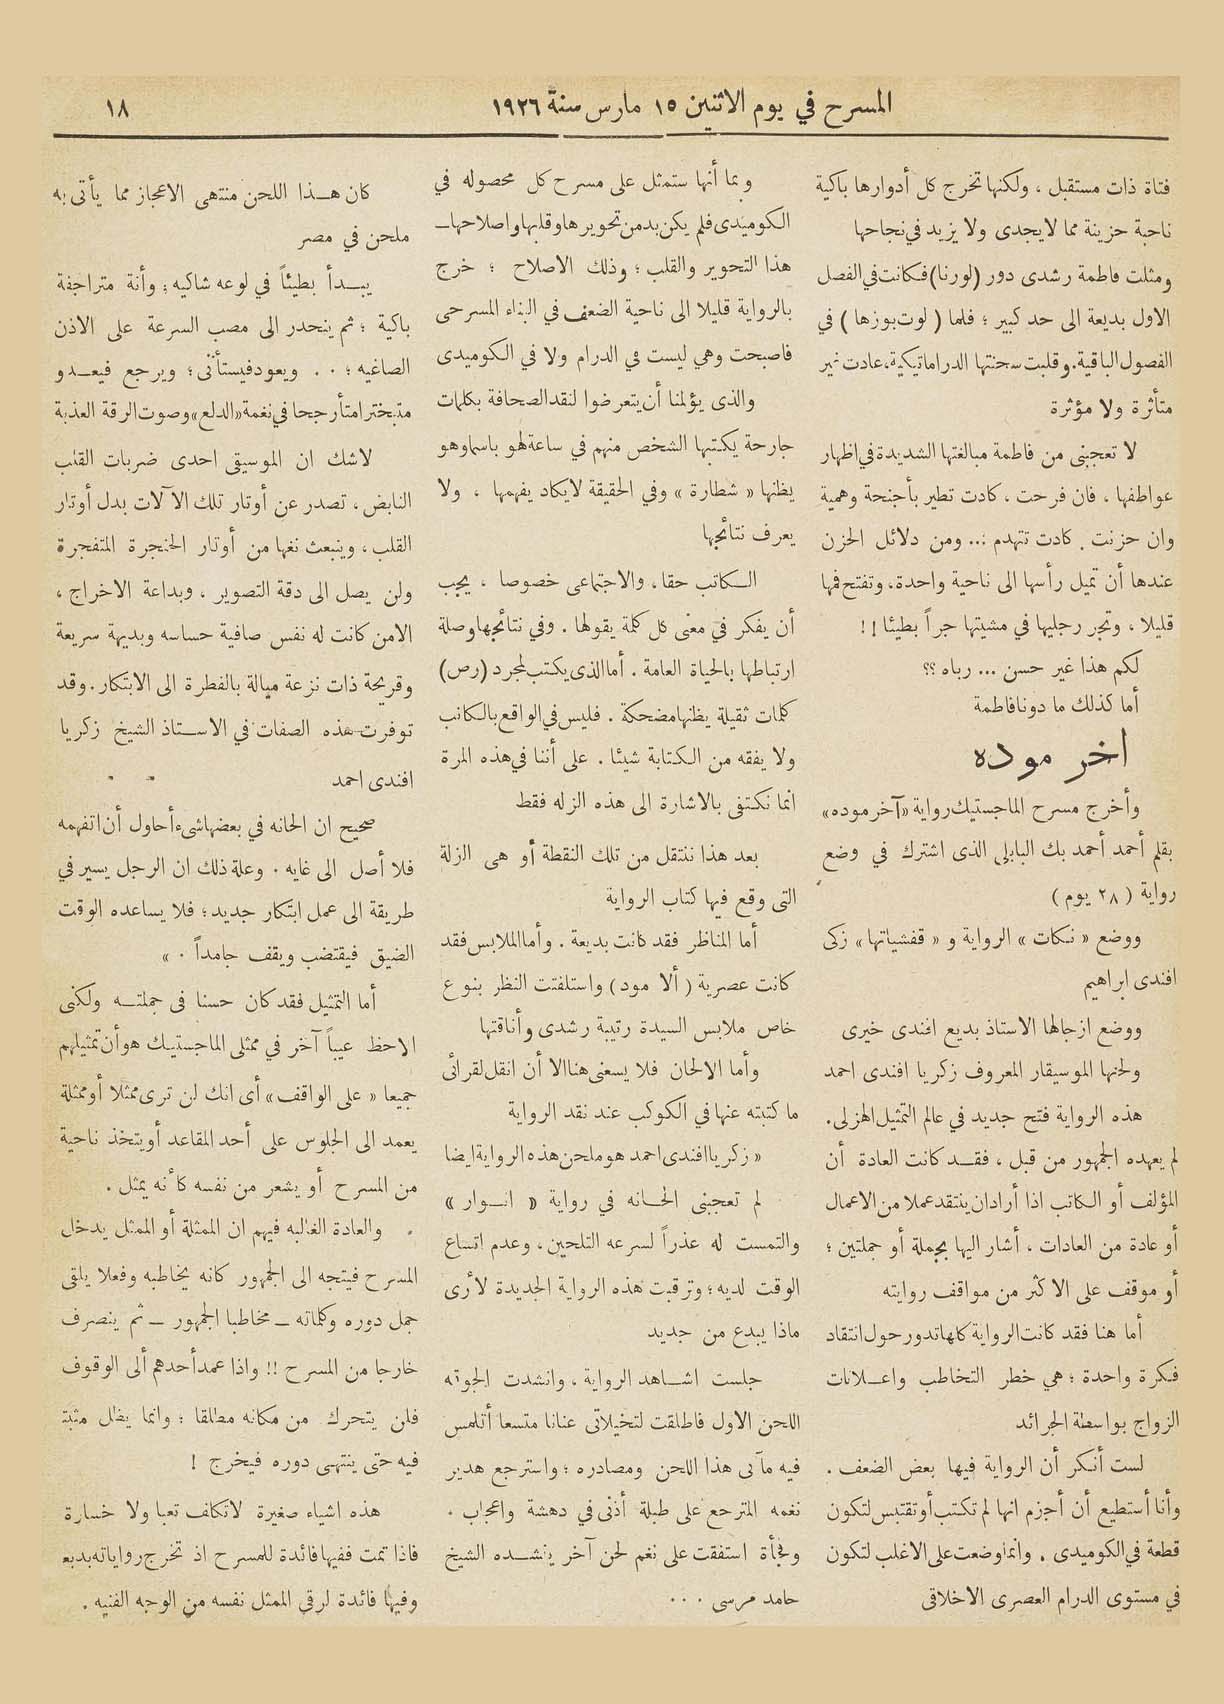 المسرح في يوم الاثنين ١٥ مارس سنة ١٩٢٦
١٨
فتاة ذات مستقبل ، ولكنها تخرج كل أدوارها باكية
ناحبة حزينة مما لا يجدى ولا يزيد في نجاحها
ومثلت فاطمة رشدى دور (لورنا) فكانت في الفصل
الاول بديعة الى حد كبير ؛ فلما ( لوت بوزها ) في
الفصول الباقية . وقلبت سحنتها الدراماتيكية ، عادت غير
متأثرة ولا مؤثرة
لا تعجبنى من فاطمة مبالغتها الشديدة في اظهار
عواطفها ، فان فرحت ، كادت تطير بأجنحة وهمية
وان حزنت . كادت تتهدم ... ومن دلائل الحزن
عندها أن تميل رأسها الى ناحية واحدة ، وتفتح فمها
قليلا ، وتجر رجليها في مشيتها جراً بطيئا !!
لكم هذا غير حسن ... رباه ؟؟
أما كذلك ما دونا فاطمة
اخر موده
وأخرج مسرح الماجستيك رواية «آخر موده»
بقلم أحمد أحمد بك البابلى الذى اشترك في وضع
رواية ( ٢٨ يوم )
ووضع « نكات » الرواية و « قفشياتها » زكى
افندى ابراهيم
ووضع ازجالها الاستاذ بديع افندى خيرى
ولحنها الموسيقار المعروف زكريا افندى احمد
هذه الرواية فتح جديد في عالم التمثيل الهزلى .
لم يعهده الجمهور من قبل ، فقد كانت العادة أن
المؤلف أو الكاتب اذا أراد ان ينتقد عملا من الاعمال
أو عادة من العادات ، أشار اليها بجملة أو جملتين ؛
أو موقف على الاكثر من مواقف روايته
أما هنا فقد كانت الرواية كلها تدور حول انتقاد
فكرة واحدة ؛ هي خطر التخاطب واعلانات
الزواج بواسطة الجرائد
لست أنكر أن الرواية فيها بعض الضعف .
وأنا أستطيع أن أجزم انها لم تكتب أو تقتبس لتكون
قطعة في الكوميدى . وانما وضعت على الاغلب لتكون
في مستوى الدرام العصرى الاخلاقى
وبما أنها ستمثل على مسرح كل محصوله في
الكوميدى فلم يكن بد من تحويرها وقلبها واصلاحها ــ
هذا التحوير والقلب ؛ وذلك الاصلاح ؛ خرج
بالرواية قليلا الى ناحية الضعف في البناء المسرحى
فاصبحت وهي ليست في الدرام ولا في الكوميدى
والذى يؤلمنا أن يتعرضوا لنقد الصحافة بكلمات
جارحة يكتبها الشخص منهم في ساعة لهو باسما وهو
يظنها « شطارة » وفي الحقيقة لا يكاد يفهمها ، ولا
يعرف نتائجها
الكاتب حقا ، والاجتماعى خصوصا ، يجب
أن يفكر في معنى كل كلمة يقولها . وفي نتائجها وصلة
ارتباطها بالحياة العامة . أما الذى يكتب لمجرد (رص)
كلمات ثقيلة يظنها مضحكة . فليس في الواقع بالكاتب
ولا يفقه من الكتابة شيئا . على أننا في هذه المرة
انما نكتفى بالاشارة الى هذه الزله فقط
بعد هذا ننتقل من تلك النقطة أو هى الزلة
التى وقع فيها كتاب الرواية
أما المناظر فقد كانت بديعة . وأما الملابس فقد
كانت عصرية ( ألا مود ) واستلفتت النظر بنوع
خاص ملابس السيدة رتيبة رشدى وأناقتها
وأما الالحان فلا يسعنى هنا الا أن انقل لقرائى
ما كتبته عنها في الكوكب عند نقد الرواية
« زكريا افندى احمد هو ملحن هذه الرواية ايضا
لم تعجبنى الحانه في رواية « انوار »
والتمست له عذراً لسرعه التلحين ، وعدم اتساع
الوقت لديه ؛ وترقبت هذه الرواية الجديدة لأرى
ماذا يبدع من جديد
جلست اشاهد الرواية ، وانشدت الجوقه
اللحن الاول فاطلقت لتخيلاتى عنانا متسعا أتلمس
فيه مآتى هذا اللحن ومصادره ؛ واسترجع هدير
نغمه المترجع على طبلة أذنى في دهشة واعجاب .
وفجأة استفقت على نغم لحن آخر ينشده الشيخ
حامد مرسى ...
كان هذا اللحن منتهى الاعجاز مما يأتى به
ملحن في مصر
يبدأ بطيئاً في لوعه شاكيه ؛ وأنة متراجفة
باكية ؛ ثم ينحدر الى مصب السرعة على الاذن
الصاغيه ؛ . . ويعود فيستأنى ؛ ويرجع فيعدو
متبخترا متأرجحا في نغمة «الدلع» وصوت الرقة العذبة
لاشك ان الموسيقى احدى ضربات القلب
النابض ، تصدر عن أوتار تلك الآلات بدل أوتار
القلب ، وينبعث نغمها من أوتار الحنجرة المتفجرة
ولن يصل الى دقة التصوير ، وبداعة الاخراج ،
الا من كانت له نفس صافية حساسه وبديهة سريعة
وقريحة ذات نزعة ميالة بالفطرة الى الابتكار . وقد
توفرت هذه الصفات في الاستاذ الشيخ زكريا
افندى احمد
صحيح ان الحانه في بعضها شيء أحاول أن اتفهمه
فلا أصل الى غايه . وعلة ذلك ان الرجل يسير في
طريقة الى عمل ابتكار جديد ؛ فلا يساعده الوقت
الضيق فيقتضب ويقف جامداً . »
أما التمثيل فقد كان حسنا في جملته ولكنى
الاحظ عيباً آخر في ممثلى الماجستيك هو أن تمثيلهم
جميعا « على الواقف » أى انك لن ترى ممثلا أو ممثلة
يعمد الى الجلوس على أحد المقاعد أو يتخذ ناحية
من المسرح أو يشعر من نفسه كأنه يمثل .
والعادة الغالبه فيهم ان الممثلة أو الممثل يدخل
المسرح فيتجه الى الجمهور كانه يخاطبه وفعلا يلقى
جمل دوره وكلماته ــ مخاطبا الجمهور ــ ثم ينصرف
خارجا من المسرح !! واذا عمد أحدهم ألى الوقوف
فلن يتحرك من مكانه مطلقا ؛ وانما يظل مثبتا
فيه حتى ينتهى دوره فيخرج !
هذه اشياء صغيرة لا تكلف تعبا ولا خسارة
فاذا تمت ففيها فائدة للمسرح اذ تخرج رواياته بديعة
وفيها فائدة لرقى الممثل نفسه من الوجه الفنيه .